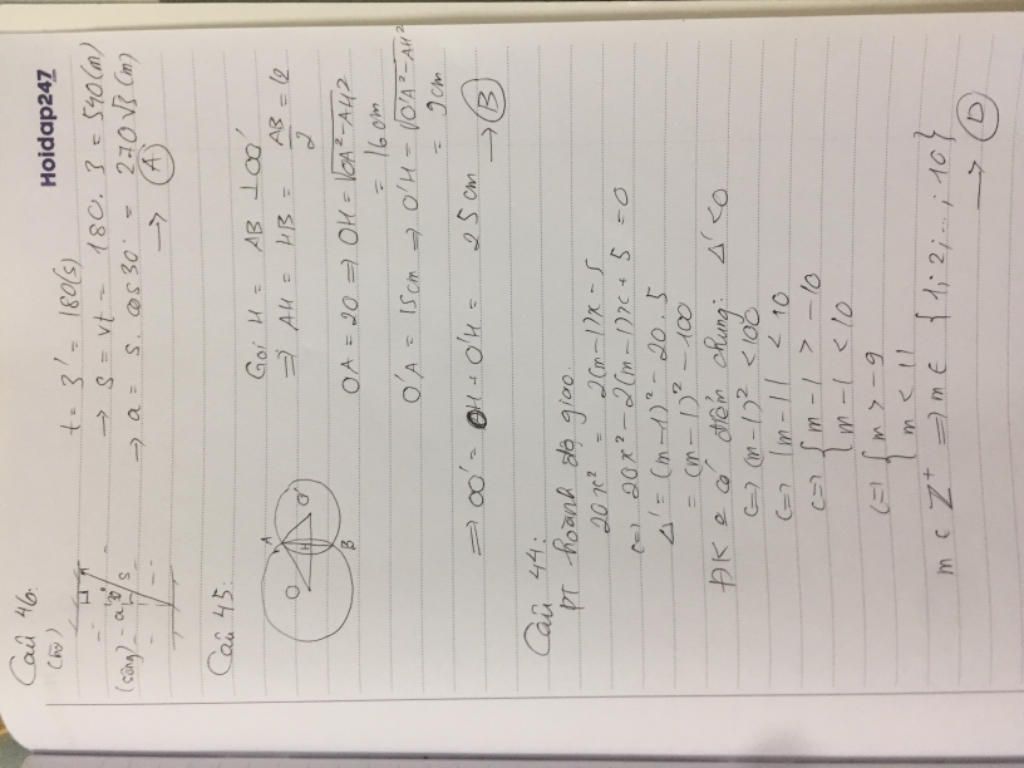 Hoidap247
Câu 46:
t = 3' = 180(s)
→ S = vt = 180 . 3 = 540 (m)
→ a = s. cos 30° = 270√3 (m)
→ (A)
(sông)
a
30°
S
Câu 45:
Gọi H = AB ⊥ OO'
⇒ AH = HB = AB/2 = 12
OA = 20 ⇒ OH = √(OA² - AH²)
= 16cm
O'A = 15cm ⇒ O'H = √(O'A² - AH²)
= 9cm
⇒ OO' = OH + O'H = 25 cm → (B)
A
O
H
O'
B
Câu 44:
PT hoành độ giao.
20x² = 2(m-1)x - 5
<=> 20x² - 2(m-1)x + 5 = 0
Δ' = (m-1)² - 20.5
= (m-1)² - 100
ĐK e có điểm chung: Δ' < 0
<=> (m-1)² < 100
<=> |m-1| < 10
<=> { m-1 > -10
m-1 < 10
<=> { m > -9
m < 11
m ∈ Z⁺ ⇒ m ∈ {1; 2; ...; 10}
→ (D)